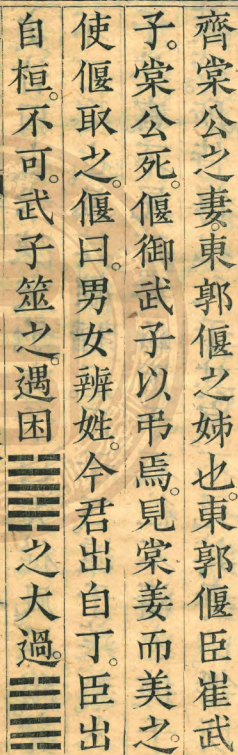 齊棠公之妻。東郭偃之姊也。東郭偃臣崔武
子。棠公死。偃御武子以弔焉。見棠姜而美之。
使偃取之。偃曰。男女辨姓。今君出自丁。臣出
自桓。不可。武子筮之。遇困䷮之大過。䷛